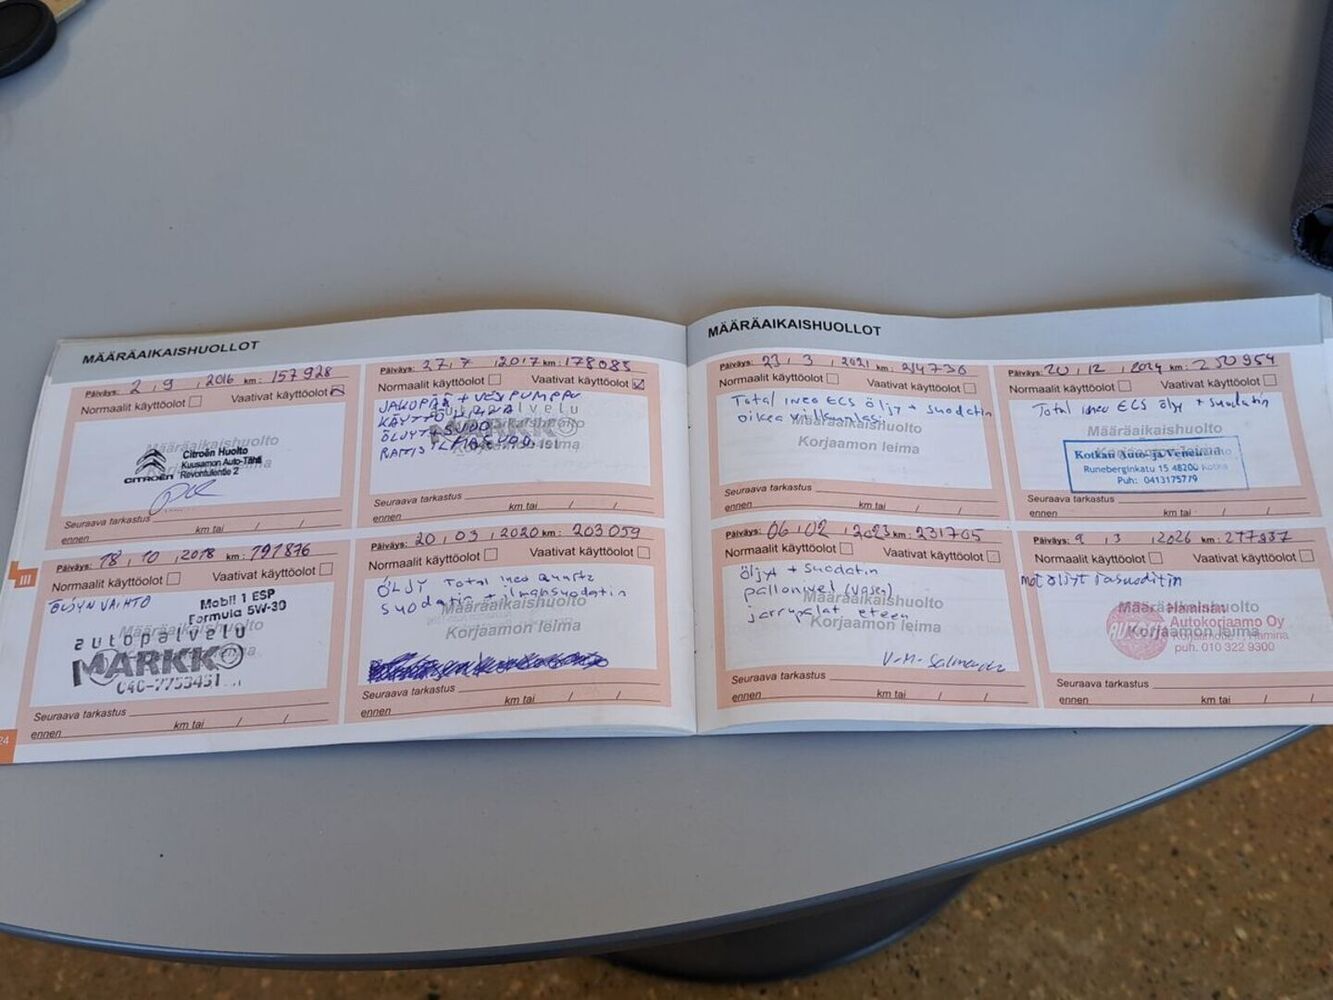 MÄÄRÄAIKAISHUOLLOT
Päiväys: 2 , 9 , 2016 km: 157928
Normaalit käyttöolot Vaativat käyttöolot
Määräaikaishuolto
Citroën Huolto
Kuusamon Auto-Tähti
Revontulentie 2
CITROËN
Seuraava tarkastus
ennen km tai / /
Päiväys: 27, 7 , 2017 km: 178085
Normaalit käyttöolot Vaativat käyttöolot
JAKOPÄÄ + VESIPUMPPU
KÄYTTÖHIHNA
ÖLJYT + SUOD
RAITIS ILMASUOD.
autopalvelu
MARKKO
Seuraava tarkastus
ennen km tai / /
Päiväys: 18, 10 , 2018 km: 191876
Normaalit käyttöolot Vaativat käyttöolot
ÖLJYN VAIHTO
Mobil 1 ESP
Formula 5W-30
autopalvelu
MARKKO
040-7753451
Seuraava tarkastus
ennen km tai / /
Päiväys: 20, 03 , 2020 km: 203059
Normaalit käyttöolot Vaativat käyttöolot
ÖLJY Total ineo quartz
suodatin + ilmansuodatin
Määräaikaishuolto
Korjaamon leima
Seuraava tarkastus
ennen km tai / /
III
24
MÄÄRÄAIKAISHUOLLOT
Päiväys: 23, 3 , 2021 km: 214736
Normaalit käyttöolot Vaativat käyttöolot
Total ineo ECS öljy + suodatin
oikea
Määräaikaishuolto
Korjaamon leima
Seuraava tarkastus
ennen km tai / /
Päiväys: 20, 12 , 2024 km: 250954
Normaalit käyttöolot Vaativat käyttöolot
Total ineo ECS öljy + suodatin
Määräaikaishuolto
Kotkan Auto- ja
Runeberginkatu 15 48200 Kotka
Puh: 0413175779
Seuraava tarkastus
ennen km tai / /
Päiväys: 06, 02 , 2023 km: 231705
Normaalit käyttöolot Vaativat käyttöolot
öljyt + suodatin
pallonivel (vasen)
jarrupalat eteen
Määräaikaishuolto
Korjaamon leima
V-M-
Seuraava tarkastus
ennen km tai / /
Päiväys: 9 , 3 , 2026 km: 277937
Normaalit käyttöolot Vaativat käyttöolot
mot öljyt
Määräaikaishuolto
Korjaamon leima
Haminan
Autokorjaamo Oy
Hamina
puh. 010 322 9300
Seuraava tarkastus
ennen km tai / /